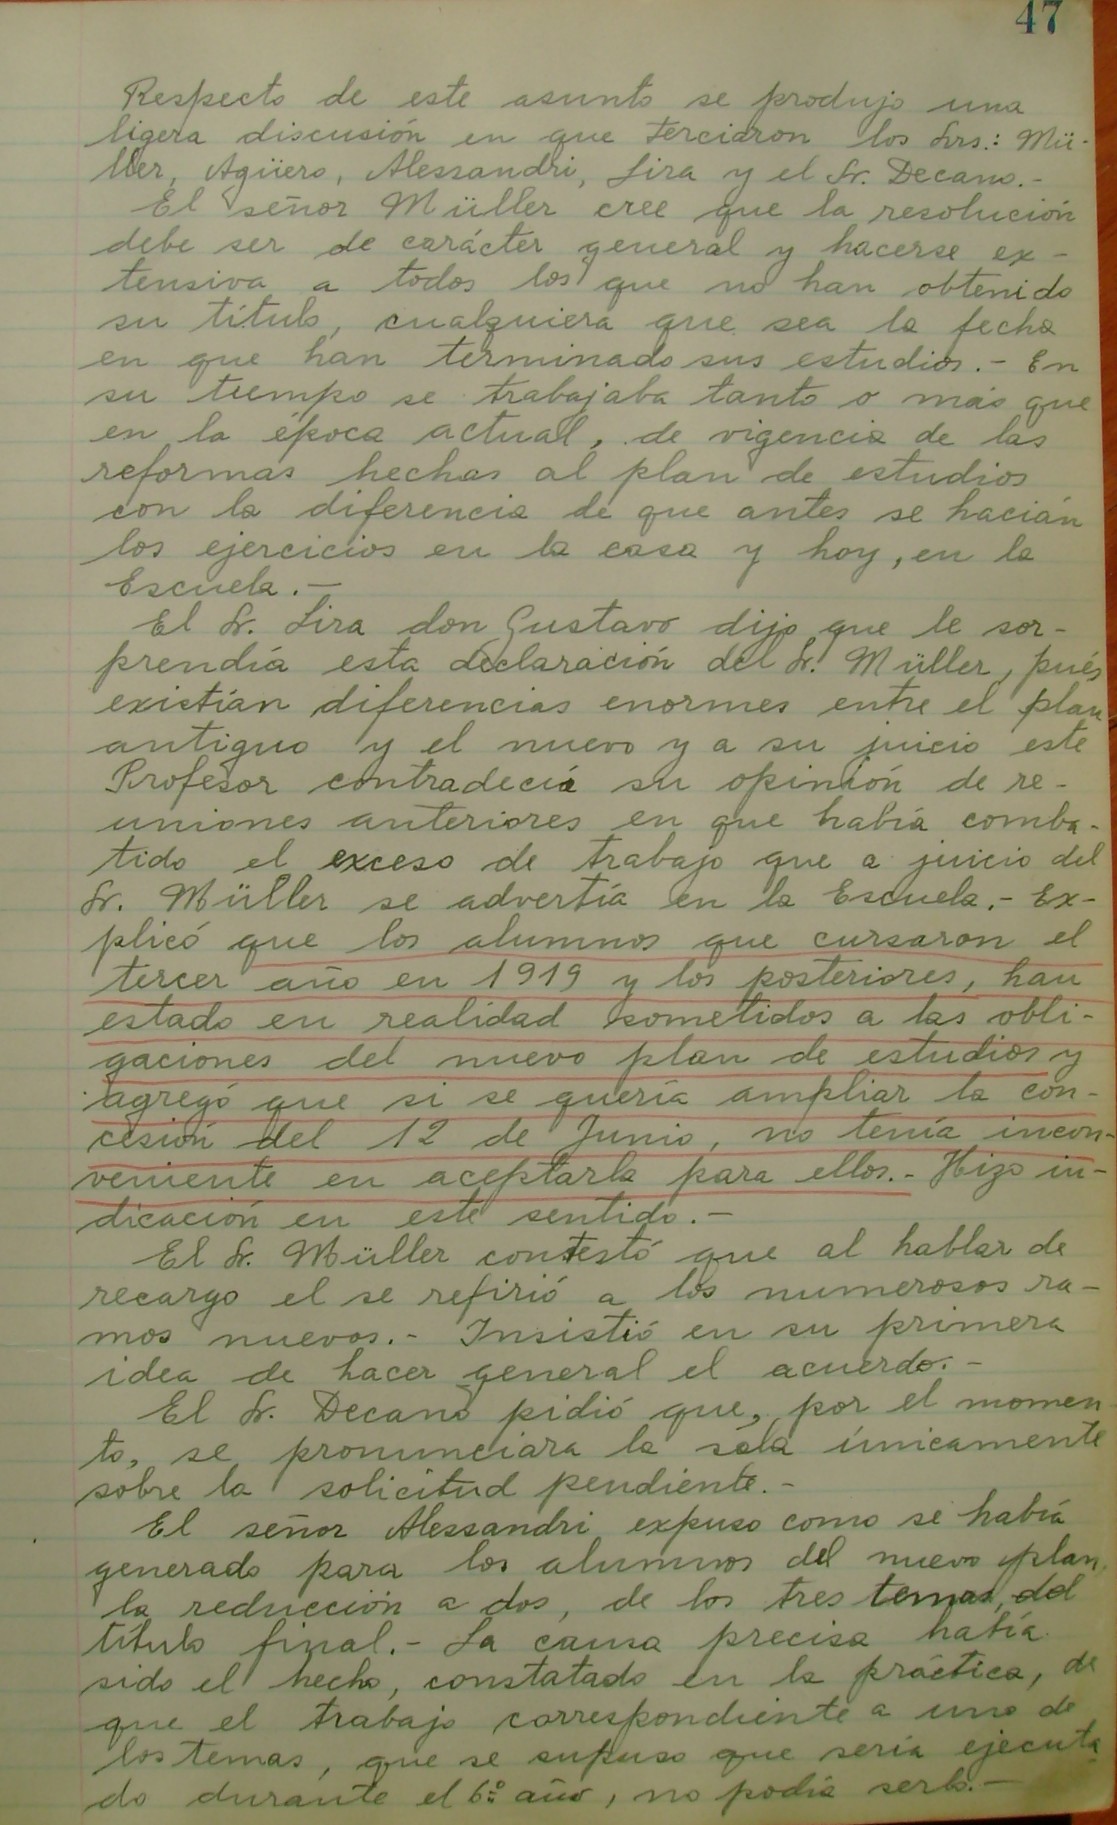 47
Respecto de este asunto se produjo una
ligera discusión en que terciaron los Srs.: Mü-
ller, Agüero, Alessandri, Lira y el Sr. Decano.-
El señor Müller cree que la resolución
debe ser de carácter general y hacerse ex-
tensiva a todos los que no han obtenido
su título, cualquiera que sea la fecha
en que han terminado sus estudios.- En
su tiempo se trabajaba tanto o más que
en la época actual, de vigencia de las
reformas hechas al plan de estudios
con la diferencia de que antes se hacían
los ejercicios en la casa y hoy, en la
Escuela.-
El Sr. Lira don Gustavo dijo que le sor-
prendía esta declaración del Sr. Müller, pués
existían diferencias enormes entre el plan
antiguo y el nuevo y a su juicio este
Profesor contradecía su opinión de re-
uniones anteriores en que había comba-
tido el exceso de trabajo que a juicio del
Sr. Müller se advertía en la Escuela.- Ex-
plicó que los alumnos que cursaron el
tercer año en 1919 y los posteriores, han
estado en realidad sometidos a las obli-
gaciones del nuevo plan de estudios y
agregó que si se quería ampliar la con-
cesión del 12 de Junio, no tenía incon-
veniente en aceptarla para ellos.- Hizo in-
dicación en este sentido.-
El Sr. Müller contestó que al hablar de
recargo el se refirió a los numerosos ra-
mos nuevos.- Insistió en su primera
idea de hacer general el acuerdo.-
El Sr. Decano pidió que, por el momen-
to, se pronunciara la sala únicamente
sobre la solicitud pendiente.-
El señor Alessandri expuso como se había
generado para los alumnos del nuevo plan,
la reducción a dos, de los tres temas, del
título final.- La causa precisa había
sido el hecho, constatado en la práctica, de
que el trabajo correspondiente a uno de
los temas, que se supuso que sería ejecuta
do durante el 6º año, no podía serlo.-